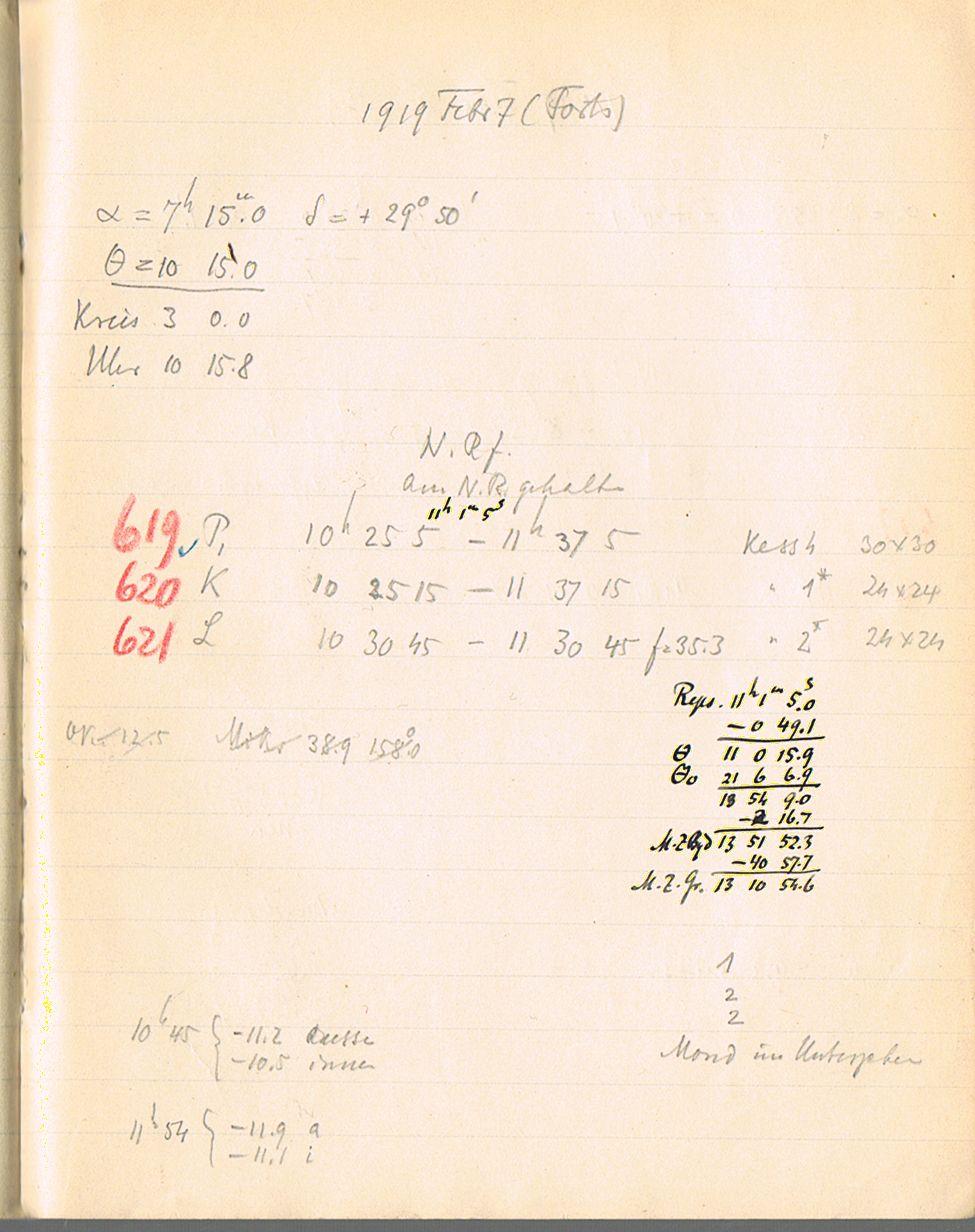 1919 Febr 7 (Forts)
α = 7h 15m.0 δ = + 29° 50'
Θ = 10 15.0
Kreis 3 0.0
Uhr 10 15.8
N. Rf.
am N.R. gehalten
11h 1m 5s
619 P, 10h 25 5 – 11h 37 5 Kessh 30×30
620 K 10 25 15 – 11 37 15 " 1* 24×24
621 L 10 30 45 – 11 30 45 f=35.3 " 2* 24×24
12.5 38.9 158°.0
Reps. 11h 1m 5s.0
– 0 49.1
Θ 11 0 15.9
Θo 21 6 6.9
13 54 9.0
–2 16.7
M.Z.Bgd 13 51 52.3
–40 57.7
M.Z.Gr. 13 10 54.6
1
2
2
10h 45 { –11.2 aussen
–10.5 innen
Mond im Untergehen
11h 54 { –11.9 a
–11.1 i